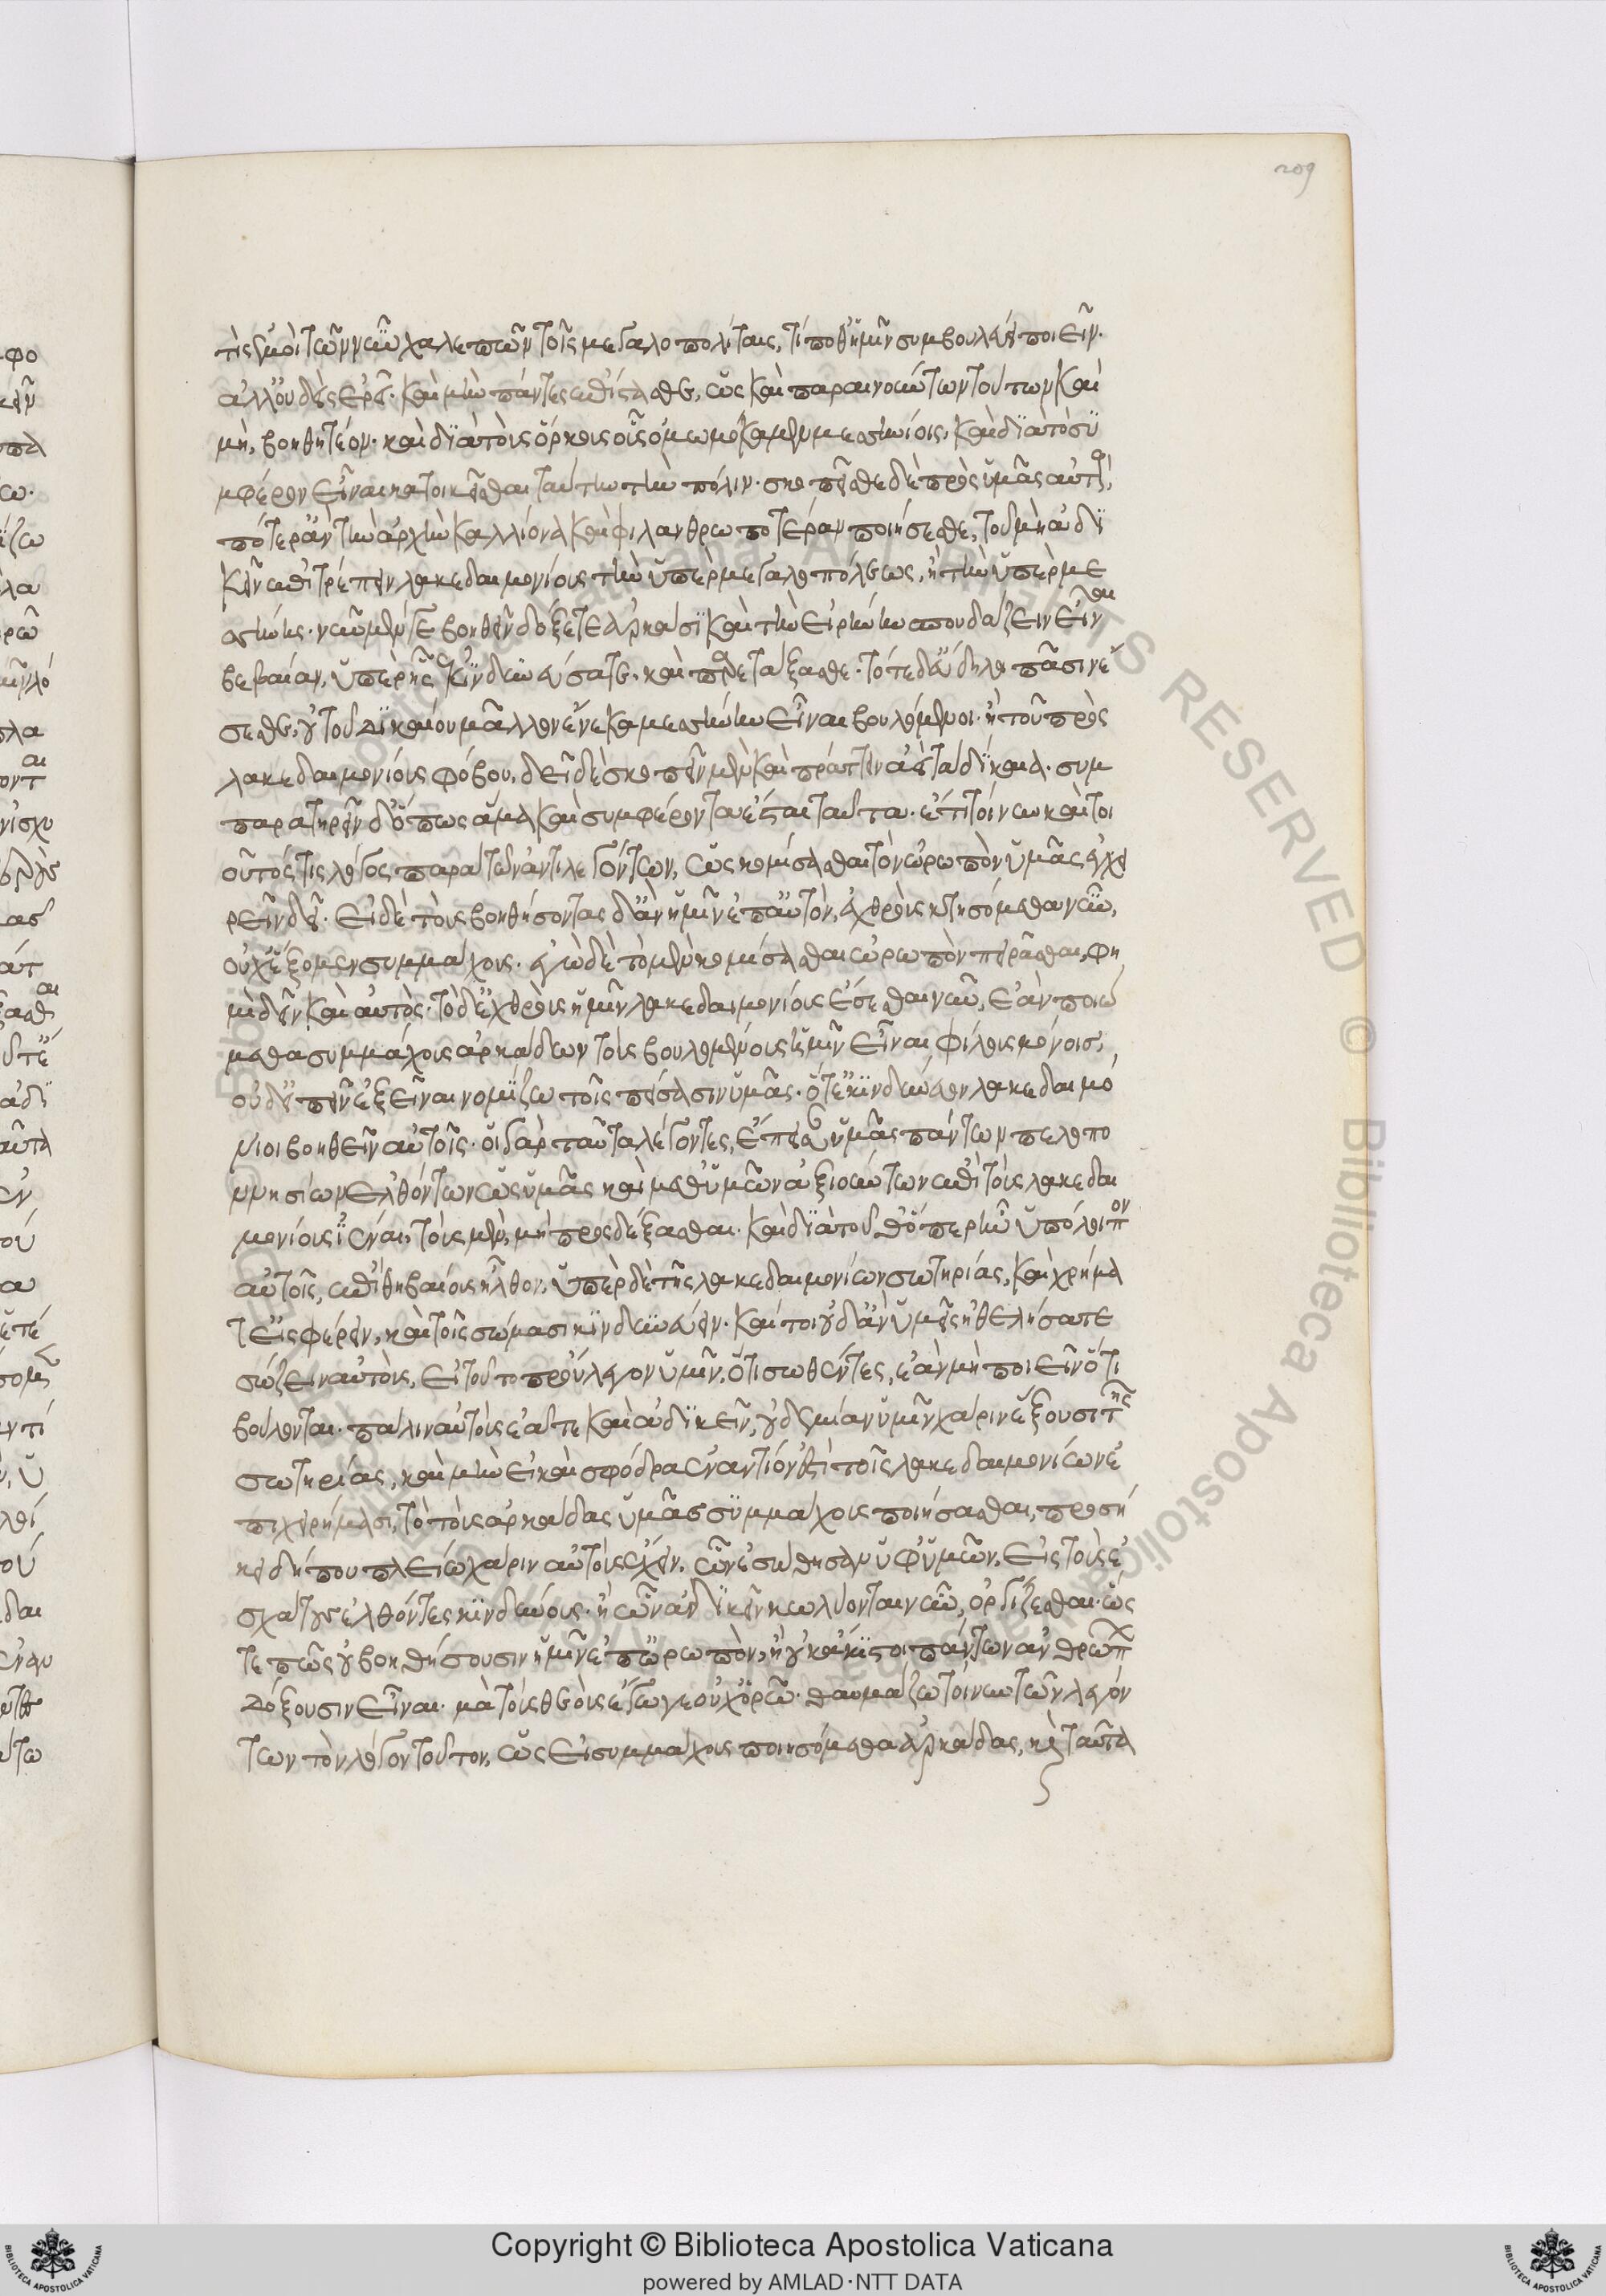 209
τίς ἐμοὶ τῶν νῦν χαλεπῶν τοῖς μεγαλοπολίταις, τί ποθ' ἡμῖν συμβουλεύει ποιεῖν.
ἀλλ' οὐδεὶς ἐρεῖ. καὶ μὴν πάντες ἐπίστασθε, ὡς καὶ παραινούντων τούτων καὶ
μὴ, βοηθητέον. καὶ διὰ τοὺς ὅρκους οὓς ὀμωμόκαμεν μεσσηνίοις, καὶ διὰ τὸ συ
μφέρον εἶναι κατοικεῖσθαι ταύτην τὴν πόλιν. σκοπεῖσθε δὲ πρὸς ὑμᾶς αὐτοὺς,
πότερ' ἂν τὴν ἀρχὴν καλλίονα καὶ φιλανθρωποτέραν ποιήσεσθε, τοῦ μὴ ἀδι
κεῖν ἐπιτρέπειν λακεδαιμονίοις τὴν ὑπὲρ μεγαλοπόλεως, ἢ τὴν ὑπὲρ με
σσήνης. νῦν μέν γε βοηθεῖν δόξετε ἀρκάσι καὶ τὴν εἰρήνην σπουδάζειν εἶναι
βεβαίαν, ὑπὲρ ἧς ἐκινδυνεύσατε. καὶ παρετάξασθε. τότε δ' εὔδηλοι πᾶσιν ἔ
σεσθε, οὐ τοῦ δικαίου μᾶλλον ἕνεκα μεσσήνην εἶναι βουλόμενοι. ἢ τοῦ πρὸς
λακεδαιμονίους φόβου. δεῖ δὲ σκοπεῖν μὲν καὶ πράττειν ἀεὶ τὰ δίκαια. συμ
παρατηρεῖν δ' ὅπως ἅμα καὶ συμφέροντα ἔσται ταῦτα. ἔστι τοίνυν καὶ τοι
οῦτός τις λόγος παρὰ τῶν ἀντιλεγόντων, ὡς κομίσασθαι τὸν ὠρωπὸν ὑμᾶς ἐγχει
ρεῖν δεῖ. εἰ δὲ τοὺς βοηθήσοντας δ' ἂν ἡμῖν ἐπ' αὐτὸν, ἐχθροὺς κτησόμεθα νῦν,
οὐχ ἕξομεν συμμάχους. ἐγὼ δὲ τὸ μὲν κομίσασθαι ὠρωπὸν πειρᾶσθαι, φη
μὶ δεῖν καὶ αὐτός. τὸ δ' ἐχθροὺς ἡμῖν λακεδαιμονίους ἔσεσθαι νῦν, ἐὰν ποιώ
μεθα συμμάχους ἀρκάδων τοὺς βουλομένους ἡμῖν εἶναι φίλους μόνοις,
οὐδ' εἰπεῖν ἐξεῖναι νομίζω τοῖς πείσασιν ὑμᾶς. ὅτ' ἐκινδύνευον λακεδαιμό
νιοι βοηθεῖν αὐτοῖς. οἱ γὰρ ταῦτα λέγοντες, ἔπεισαν ὑμᾶς πάντων πελοπο
ννησίων ἐλθόντων ὡς ὑμᾶς καὶ μεθ' ὑμῶν ἀξιούντων ἐπὶ τοὺς λακεδαι
μονίους ἰέναι, τοὺς μὲν, μὴ προσδέξασθαι. καὶ διὰ τοῦθ' ὅπερ ἦν ὑπόλοιπον
αὐτοῖς, ἐπὶ θηβαίους ἦλθον. ὑπὲρ δὲ τῆς λακεδαιμονίων σωτηρίας, καὶ χρήμα
τ' εἰσφέρειν, καὶ τοῖς σώμασι κινδυνεύειν. καί τοι οὐδ' ἂν ὑμεῖς ἠθελήσατε
σώζειν αὐτοὺς, εἰ τοῦτο προὔλεγον ὑμῖν, ὅτι σωθέντες, ἐὰν μὴ ποιεῖν ὅ τι
βούλονται. πάλιν αὐτοὺς ἐᾶτε καὶ ἀδικεῖν, οὐδεμίαν ὑμῖν χάριν ἕξουσι τῆς
σωτηρίας, καὶ μὴν εἰ καὶ σφόδρα ἐναντίον ἐστὶ τοῖς λακεδαιμονίων ἐ
πιχειρήμασι, τὸ τοὺς ἀρκάδας ὑμᾶς συμμάχους ποιήσασθαι, προσή
κει δήπου πλείω χάριν αὐτοὺς ἔχειν. ὧν ἐσώθησαν ὑφ' ὑμῶν, εἰς τοὺς ἐ
σχάτους ἐλθόντες κινδύνους. ἢ ὧν ἀδικεῖν κωλύονται νῦν, ὀργίζεσθαι. ὥς
τε πῶς οὐ βοηθήσουσιν ἡμῖν ἐπ' ὠρωπὸν, ἢ οὐ κάκιστοι πάντων ἀνθρώπων
δόξουσιν εἶναι. μὰ τοὺς θεοὺς ἔγωγε οὐχ ὁρῶ. θαυμάζω τοίνυν τῶν λεγόν
των τὸν λόγον τοῦτον, ὡς εἰ συμμάχους ποιησόμεθα ἀρκάδας, καὶ ταῦτα
Copyright © Biblioteca Apostolica Vaticana
powered by AMLAD·NTT DATA